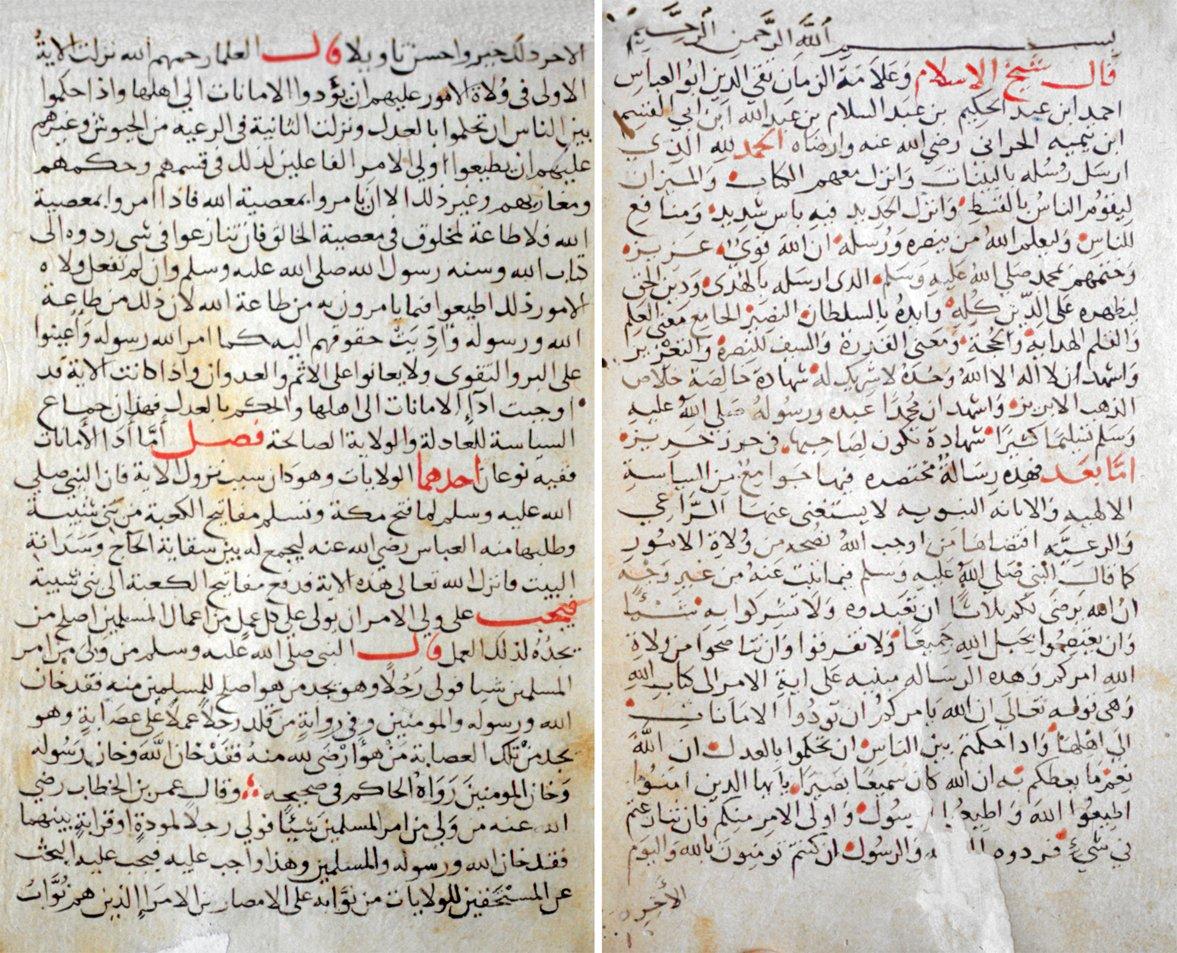 بسم الله الرحمن الرحيم
قال شيخ الاسلام وعلامة الزمان تقي الدين ابو العباس
احمد ابن عبد الحليم بن عبد السلام بن عبد الله ابن ابي القسم
ابن تيميه الحراني رضي الله عنه وارضاه الحمد لله الذي
ارسل رسله بالبينات وانزل معهم الكتاب والميزان
ليقوم الناس بالقسط وانزل الحديد فيه باس شديد ومنافع
للناس وليعلم الله من ينصره ورسله ان الله قوي عزيز
وختمهم محمد صلى الله عليه وسلم الذي ارسله بالهدى ودين الحق
ليظهره على الدين كله وايده بالسلطان النصير الجامع معنى العلم
والقلم الهداية والحجة ومعنى القدرة والسيف للنصرة والتعزير
واشهد ان لا اله الا الله وحده لا شريك له شهادة خالصة خلاص
الذهب الابريز واشهد ان محمدا عبده ورسوله صلى الله عليه
وسلم تسليما كثيرا شهادة تكون لصاحبها في حرز حريز
اما بعد فهذه رسالة مختصره فيها جوامع من السياسة
الالهيه والانابه النبويه لا يستغني عنها الراعي
والرعيه اقتضاها من اوجب الله نصحه من ولاة الامور
كما قال النبي صلى الله عليه وسلم فيما ثبت عنه من غير وجه
ان الله يرضى لكم ثلاثا ان تعبدوه ولا تشركوا به شيئا
وان تعتصموا بحبل الله جميعا ولا تفرقوا وان تناصحوا من ولاه
الله امركم وهذه الرساله مبنيه على اية الامر الى كتاب الله
وهي قوله تعالى ان الله يامركم ان تودوا الامانات
الى اهلها واذا حكمتم بين الناس ان تحكموا بالعدل ان الله
نعما يعظكم به ان الله كان سميعا بصيرا يا يها الذين امنوا
اطيعوا الله واطيعوا الرسول واولي الامر منكم فان تنازعتم
في شيء فردوه الى الله والرسول ان كنتم تومنون بالله واليوم
الأخر
الاخر ذلك خير واحسن تاويلا قال العلما رحمهم الله نزلت الاية
الاولى في ولاة الامور عليهم ان يؤدوا الامانات الى اهلها واذا حكموا
بين الناس ان تحكموا بالعدل ونزلت الثانية في الرعيه من الجيوش وغيرهم
عليهم ان يطيعوا اولي الامر الفاعلين لذلك في قسمهم وحكمهم
ومغازيهم وغير ذلك الا ان يامروا بمعصية الله فاذا امروا بمعصية
الله فلا طاعة لمخلوق في معصية الخالق فان تنازعوا في شي ردوه الى
كتاب الله وسنه رسول الله صلى الله عليه وسلم وان لم تفعل ولاه
الامور ذلك اطيعوا فيما يامرون به من طاعة الله لان ذلك من طاعة
الله ورسوله وادّيت حقوقهم اليه كما امر الله رسوله واعينوا
على البر والتقوى ولا يعانوا على الاثم والعدوان واذا كانت الاية قد
اوجبت ادا الامانات الى اهلها والحكم بالعدل فهذان جماع
السياسة للعادلة والولاية الصالحة فصل أما أدا الأمانات
ففيه نوعان احدهما الولايات وهو دان سبب نزول الاية فان النبي صلى
الله عليه وسلم لما فتح مكة وتسلم مفاتيح الكعبة من بني شيبة
وطلبها منه العباس رضي الله عنه ليجمع له بين سقاية الحاج وسدانة
البيت فانزل الله تعالى هذه الاية فدفع مفاتيح الكعبة الى بني شيبة
فيجب على ولي الامر ان يولى على كل عمل من اعمال المسلمين اصلح من
يجده لذلك العمل قال النبي صلى الله عليه وسلم من ولي من امر
المسلمين شيا فولى رجلا وهو يجد من هو اصلح للمسلمين منه فقد خان
الله ورسوله والمومنين وفي رواية من قلد رجلا عملا على عصابة وهو
يجد من تلك العصابة من هو أرضى لله منه فقد خان الله وخان رسوله
وخان المومنين رواه الحاكم في صحيحه وقال عمر بن الخطاب رضي
الله عنه من ولي من امر المسلمين شيئا فولى رجلا لمودة او قرابة بينهما
فقد خان الله ورسوله والمسلمين وهذا واجب عليه فيجب عليه البحث
عن المستحقين للولايات من نوابه على الامصار من الامرا الذين هم نواب